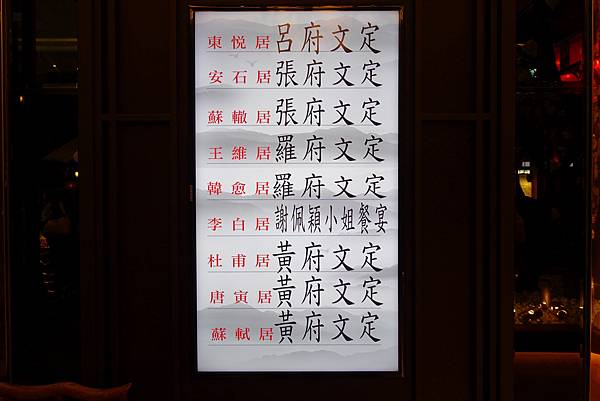 東悅居 呂府文定
安石居 張府文定
蘇轍居 張府文定
王維居 羅府文定
韓愈居 羅府文定
李白居 謝佩穎小姐餐宴
杜甫居 黃府文定
唐寅居 黃府文定
蘇軾居 黃府文定